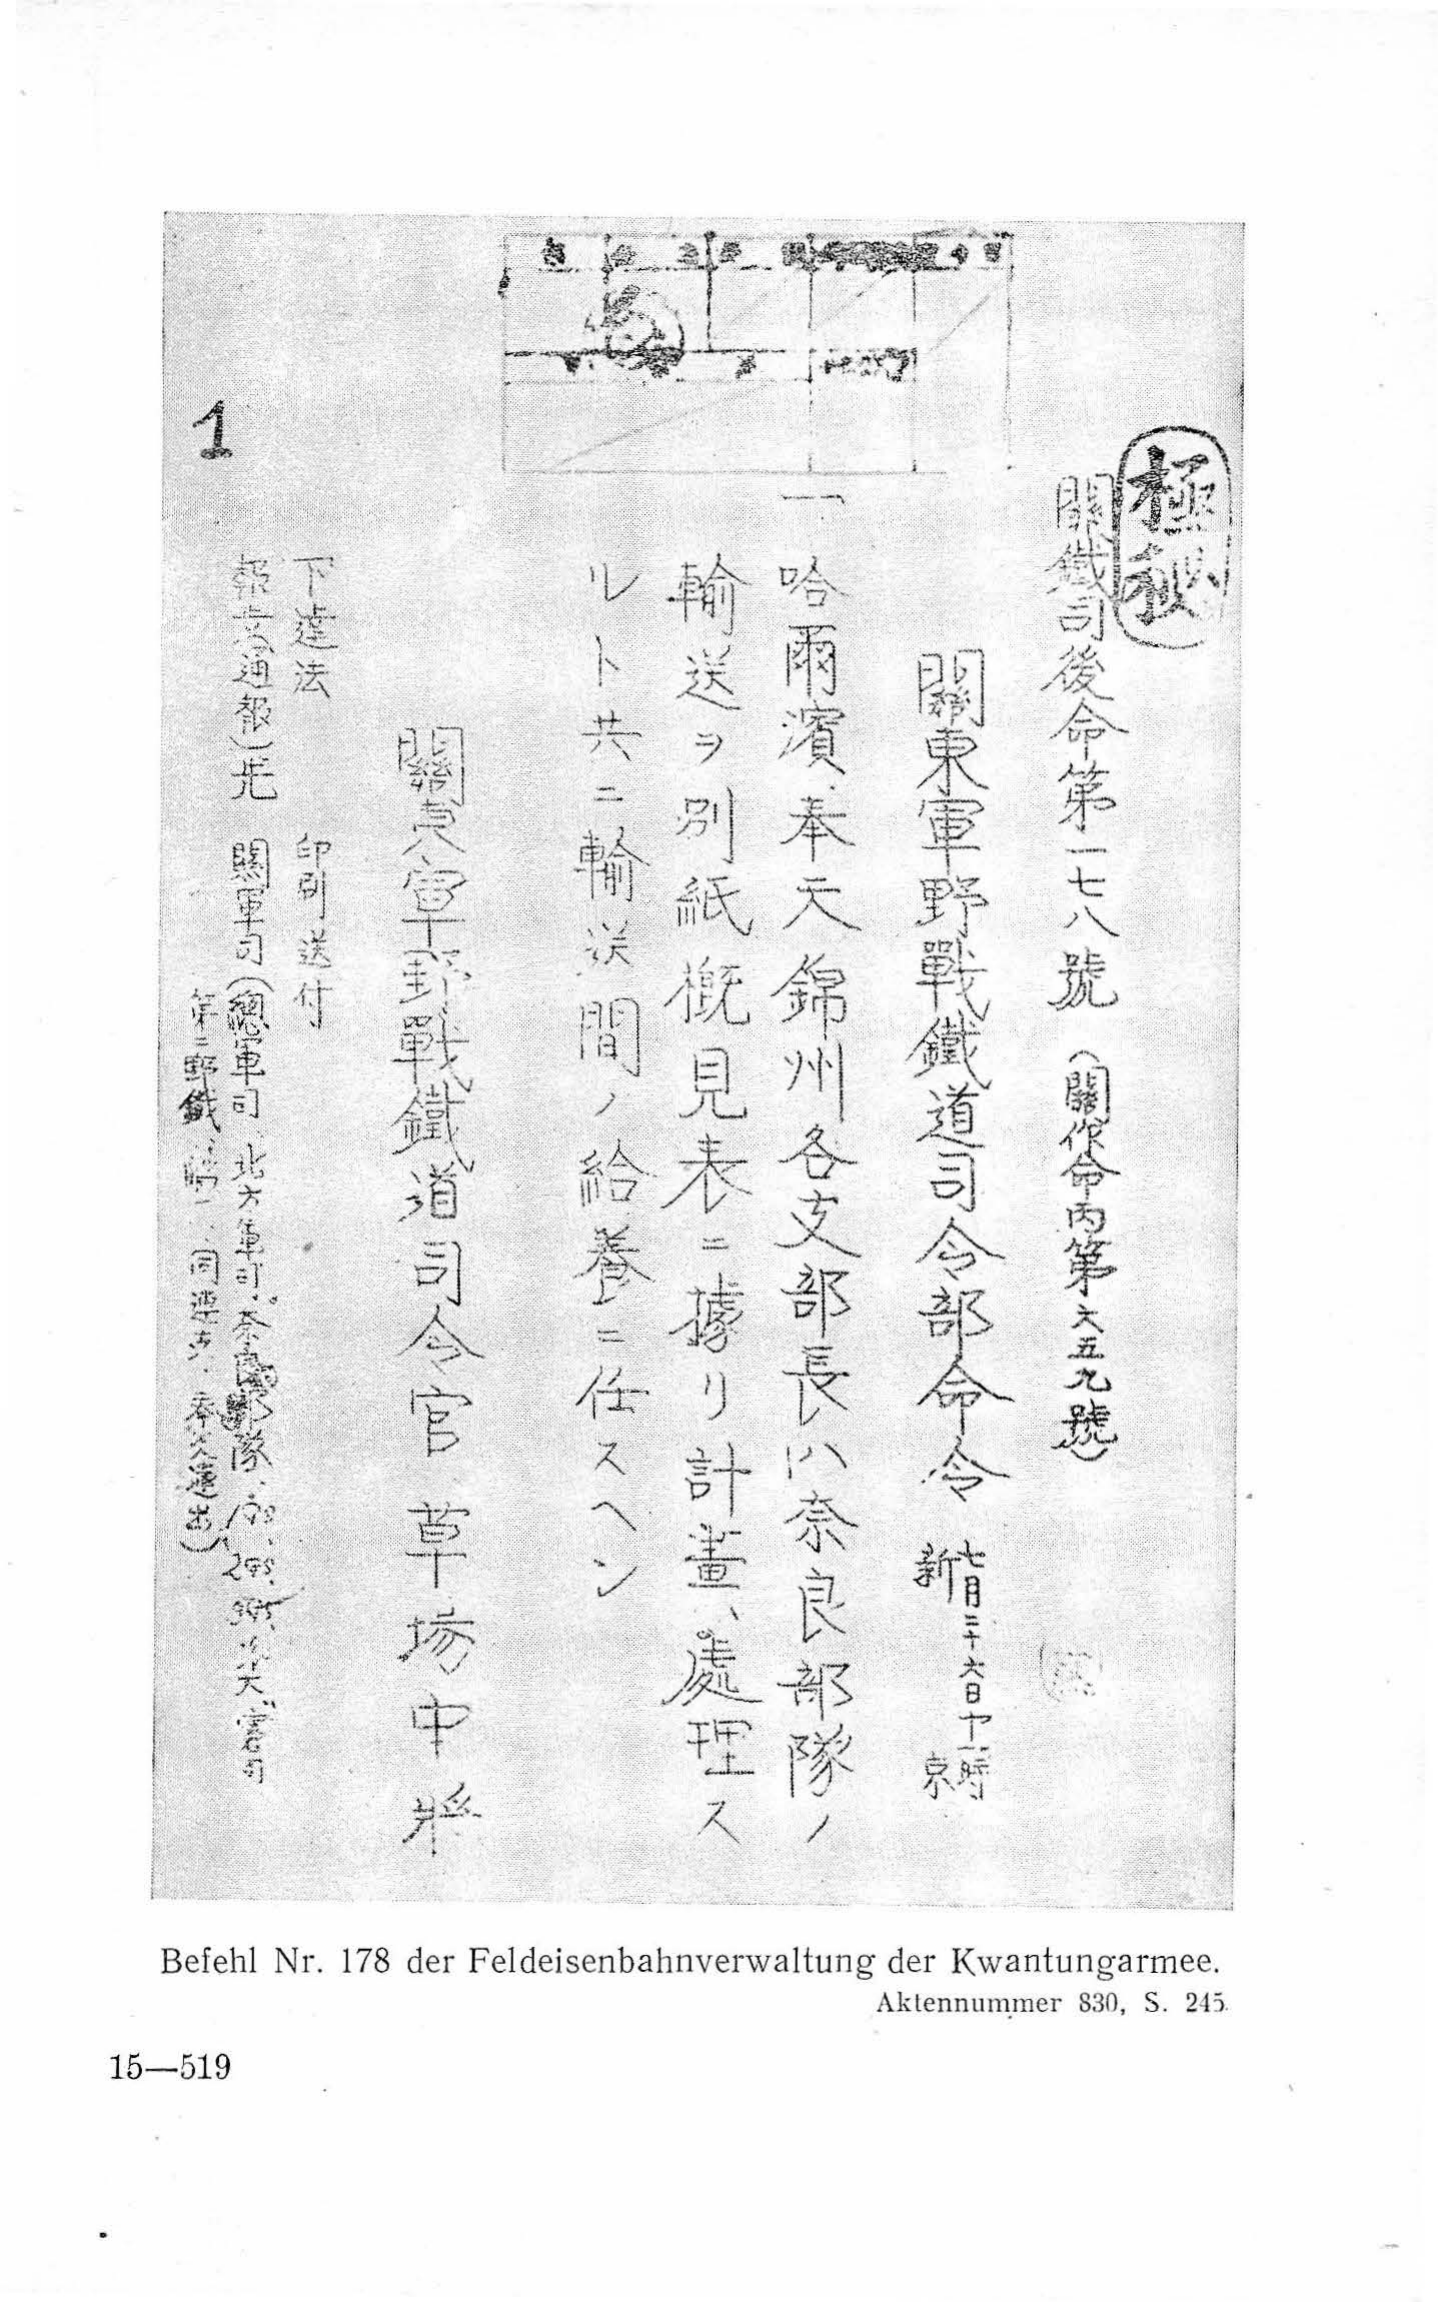 極秘
關鐵司後命第一七八號 (關作命丙第六五九號)
關東軍野戰鐵道司令部命令 七月二十六日十二時 新京
一、哈爾濱、奉天、錦州各支部長ハ奈良部隊ノ
輸送ヲ別紙概見表ニ據リ計畫、處理ス
ルト共ニ輸送間ノ給養ニ任スヘシ
關東軍野戰鐵道司令官 草場中將
下達法 印刷送付
報告(通報)先 關軍司(總軍司、北方軍司、奈良部隊
第二野鐵
1
Befehl Nr. 178 der Feldeisenbahnverwaltung der Kwantungarmee.
Aktennummer 830, S. 245.
15—519